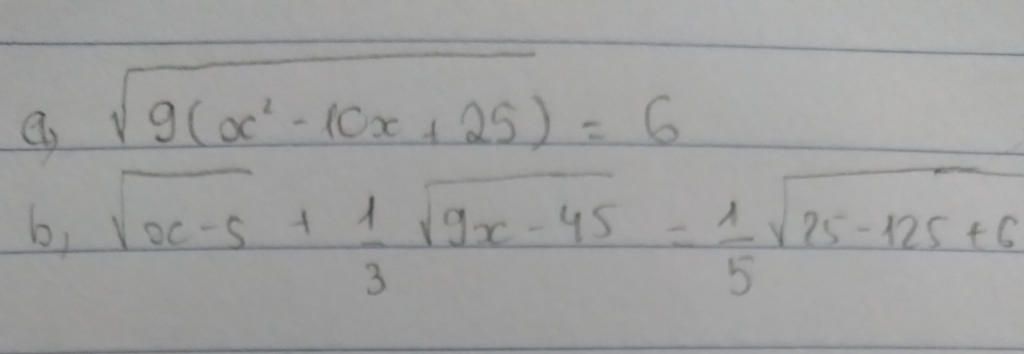 a, √9(x² - 10x + 25) = 6
b, √x-5 + 1/3 √9x-45 = 1/5 √25-125+6